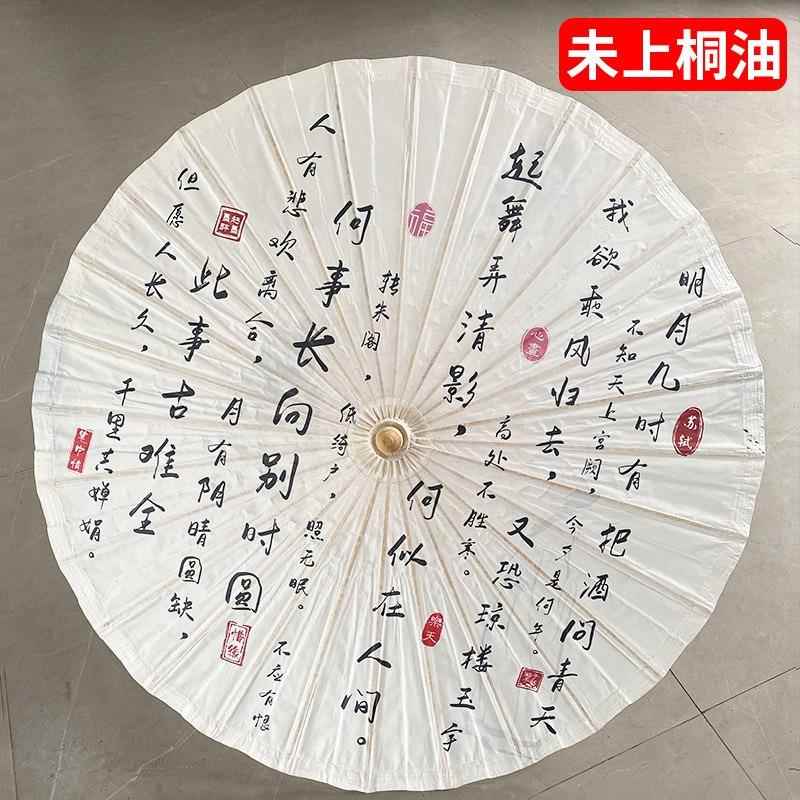 未上桐油
明月几时有
把酒问青天
不知天上宫阙，
今夕是何年。
我欲乘风归去，
又恐琼楼玉宇
高处不胜寒。
起舞弄清影，
何似在人间。
转朱阁，
低绮户，
照无眠。
不应有恨
何事长向别时圓
人有悲欢离合，
月有阴晴圓缺，
此事古难全
但愿人长久，
千里共婵娟。
福
心畫
苏轼
樂天
惜缘